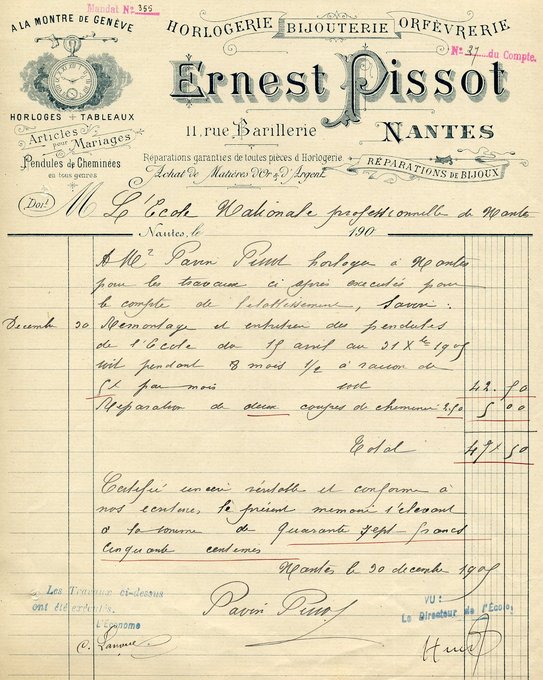 Mandat N° 355
A LA MONTRE DE GENÈVE
HORLOGERIE BIJOUTERIE ORFÈVRERIE
N° 37 du Compte.
Ernest Pissot
HORLOGES + TABLEAUX
11, rue Barillerie
NANTES
Articles pour Mariages
Pendules de Cheminées
en tous genres
Réparations garanties de toutes pièces d'Horlogerie
Achat de Matières d'Or & d'Argent
RÉPARATIONS DE BIJOUX
Doit M L'École Nationale professionnelle de Nantes
Nantes, le 190
A Mr Pavin Pissot horloger à Nantes
pour les travaux ci après exécutés pour
le compte de l'établissement, Savoir :
Decembre 30 Remontage et entretien des pendules
de l'Ecole du 15 avril au 31 Xbre 1905
soit pendant 8 mois 1/2 à raison de
5f par mois soit 42.50
Réparation de deux coupes de cheminée 2.50 5 00
Total 47f 50
Certifié sincère véritable et conforme à
nos écritures le présent mémoire s'élevant
à la somme de quarante sept francs
cinquante centimes
Nantes le 30 décembre 1905
Les Travaux ci-dessus
ont été exécutés.
L'Économe
Pavin Pissot
VU :
Le Directeur de l'École,